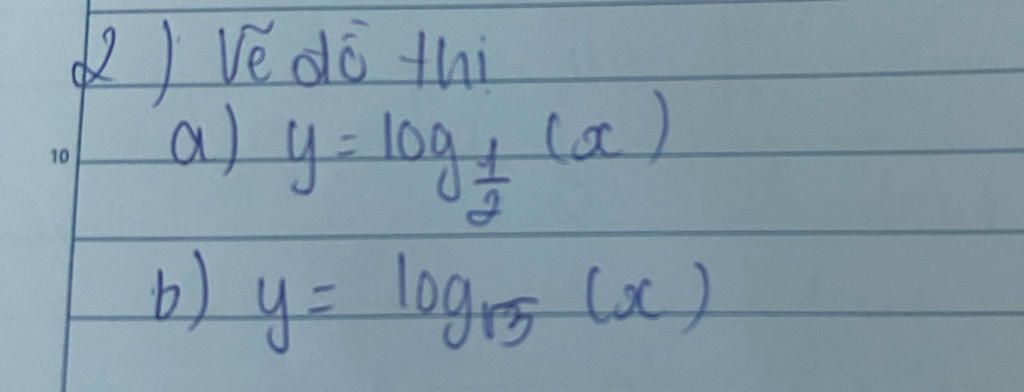 2) Vẽ đồ thi
a) y = log_{\frac{1}{2}} (x)
10
b) y = log_{\sqrt{5}} (x)